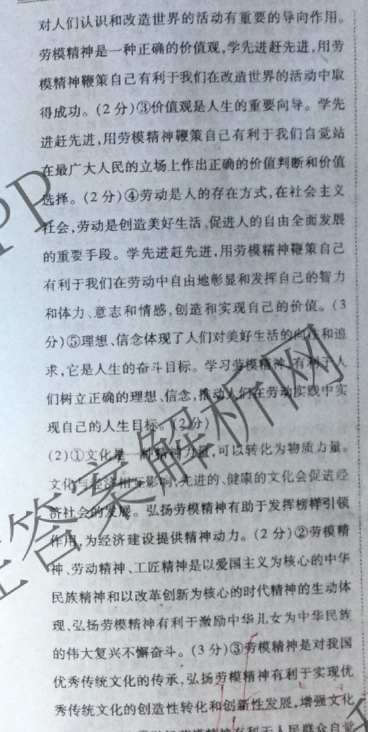 对人们认识和改造世界的活动有重要的导向作用。
劳模精神是一种正确的价值观,学先进赶先进,用劳
模精神鞭策自己有利于我们在改造世界的活动中取
得成功。(2分)③价值观是人生的重要向导。学先
进赶先进,用劳模精神鞭策自己有利于我们自觉站
在最广大人民的立场上作出正确的价值判断和价值
选择。(2分)④劳动是人的存在方式,在社会主义
社会,劳动是创造美好生活、促进人的自由全面发展
的重要手段。学先进赶先进,用劳模精神鞭策自己
有利于我们在劳动中自由地彰显和发挥自己的智力
和体力、意志和情感,创造和实现自己的价值。(3
分)⑤理想、信念体现了人们对美好生活的向往和追
求,它是人生的奋斗目标。学习劳模精神,有利于人
们树立正确的理想、信念,推动人们在劳动实践中实
现自己的人生目标。(2分)
(2)①文化是一种精神力量,可以转化为物质力量。
文化与经济相互影响,先进的、健康的文化会促进经
济社会的发展。弘扬劳模精神有助于发挥榜样引领
作用,为经济建设提供精神动力。(2分)②劳模精
神、劳动精神、工匠精神是以爱国主义为核心的中华
民族精神和以改革创新为核心的时代精神的生动体
现,弘扬劳模精神有利于激励中华儿女为中华民族
的伟大复兴不懈奋斗。(3分)③劳模精神是对我国
优秀传统文化的传承,弘扬劳模精神有利于实现优
秀传统文化的创造性转化和创新性发展,增强文化
弘扬劳模精神有利于人民群众自觉
答案解析网